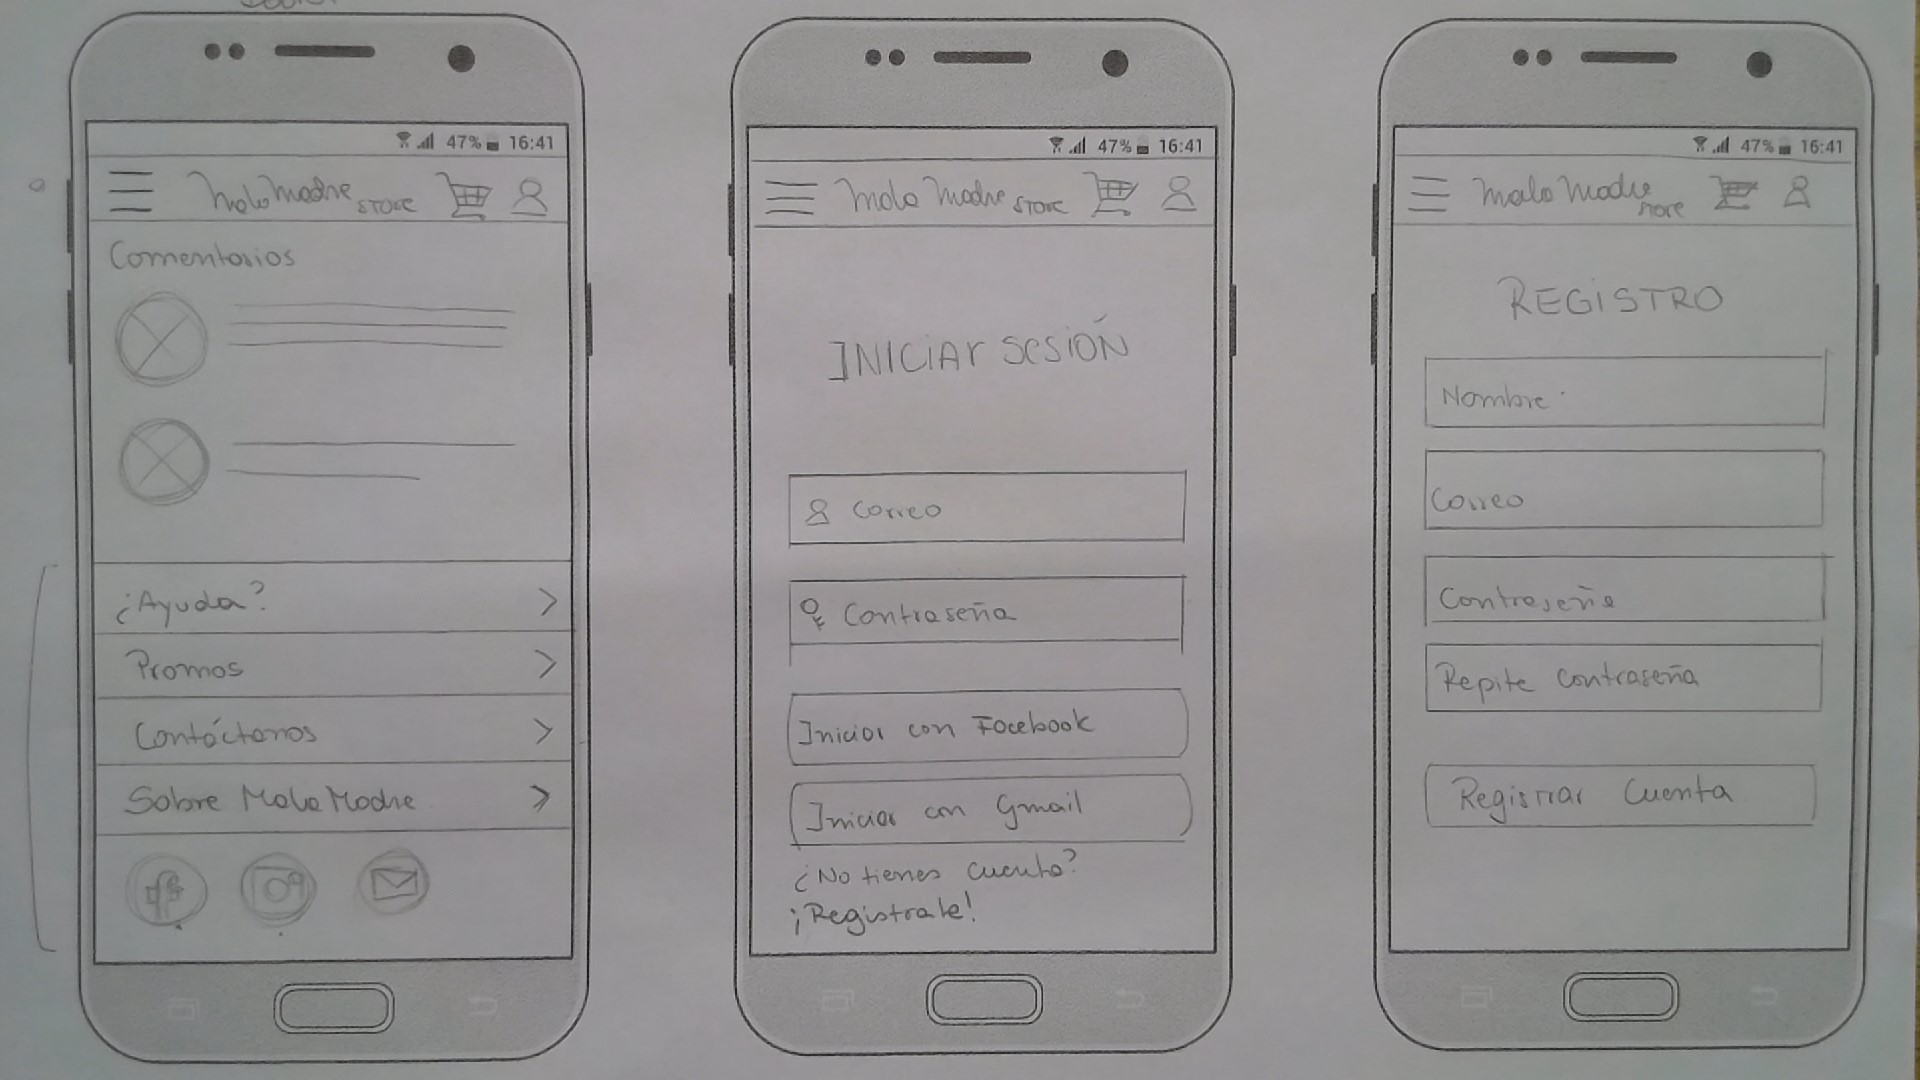 47% 16:41
Malo Madre STORE
Comentarios
¿Ayuda?
Promos
Contáctanos
Sobre Malo Madre
47% 16:41
Malo Madre STORE
INICIAR SESIÓN
Correo
Contraseña
Iniciar con Facebook
Iniciar con Gmail
¿No tienes cuenta?
¡Registrate!
47% 16:41
Malo Madre store
REGISTRO
Nombre
Correo
Contraseña
Repite contraseña
Registrar Cuenta